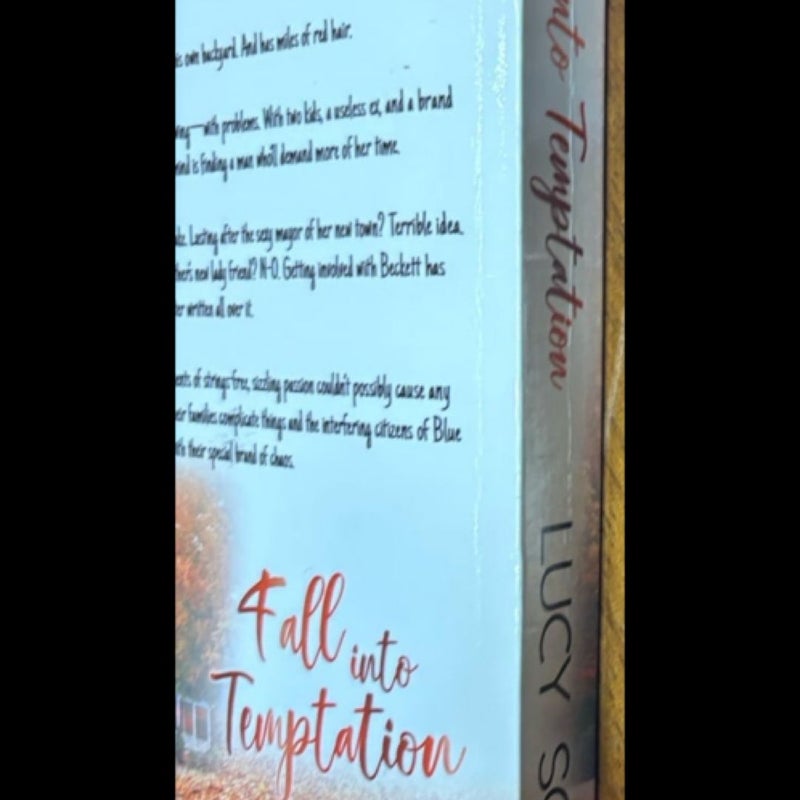 own backyard. And has miles of red hair.
with problems. With two kids, a useless ex, and a brand
is finding a man who'll demand more of her time.
Lusting after the sexy mayor of her new town? Terrible idea.
new lady friend? N-O. Getting involved with Beckett has
written all over it.
of strings-free, sizzling passion couldn't possibly cause any
families complicate things and the interfering citizens of Blue
their special brand of chaos.
Fall into
Temptation
nto Temptation
LUCY SC